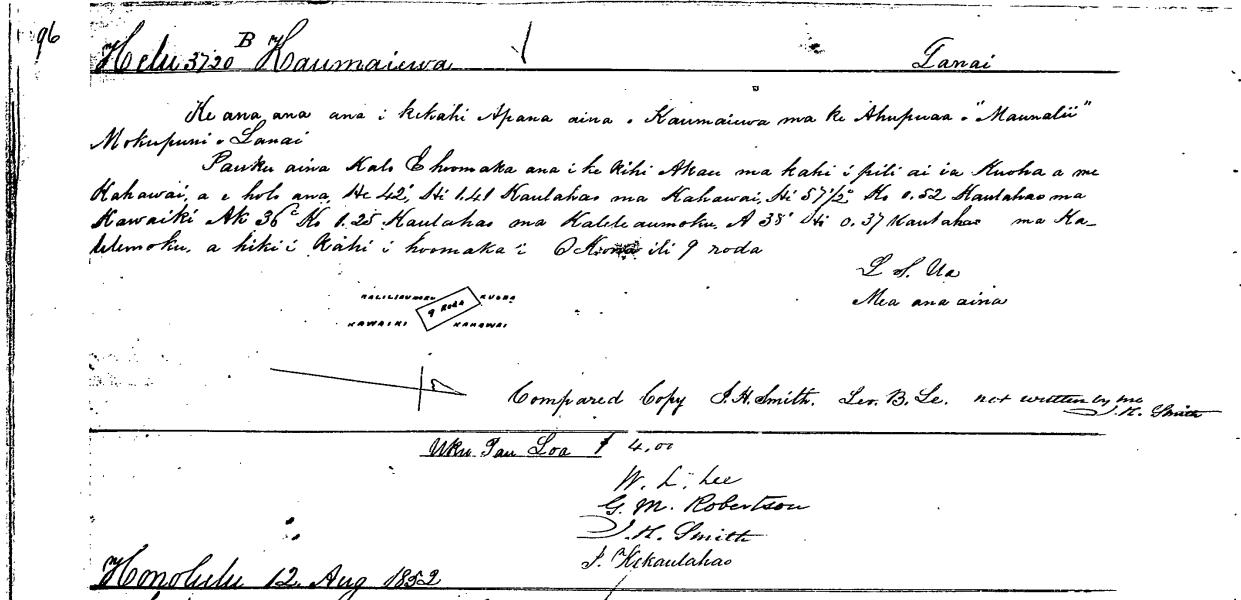 96
Helu 3720 B Kaumaiewa Lanai
Ke ana ana ana i kekahi Apana aina o Kaumaiewa ma ke Ahupuaa o "Maunalii"
Mokupuni o Lanai
Pauku aina Kalo E hoomaka ana i ke Kihi Akau ma kahi i pili ai ia Kuoha a me
Kahawai, a e holo ana, He 42° Hi 1.41 Kaulahao ma Kahawai, Hi 57½° Ko 0.52 Kaulahao ma
Kawaiki Ak 36° Ko 1.25 Kaulahao ma Kalilaumoku, A 38° Hi 0.37 Kaulahao ma Ka-
lilimoku, a hiki i Kahi i hoomaka i ili 9 roda
L S. Ua
Mea ana aina
KUOHA
9 RODA
KAWAIKI KAHAWAI
Compared Copy J. H. Smith. Sec. B. Le. not written by me
J. H. Smith
Uku Pau Loa $ 4.00
W. L. Lee
G. M. Robertson
J. H. Smith
J. Kekaulahao
Honolulu 12 Aug 1852